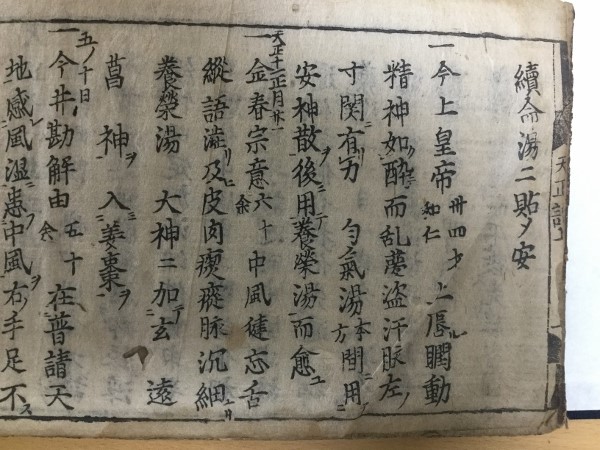 續命湯二貼〆安
一今上皇帝 丗四才 知仁 上唇瞤動
精神如酔而乱夢盗汗脉左ノ
寸関有力 匀氣湯 本方 間用
安神散後用養榮湯而愈ユ
天正十一正月廿一
一金春宗意 六十余 中風健忘舌
縱語澁及皮肉痿癡脉沉細
養榮湯 大神ニ加玄 遠
菖 神ヲ 入姜棗ヲ
五ノ十日
一今井勘解由 五十余 在普請天
地感風温患中風右手足不ス
天正記